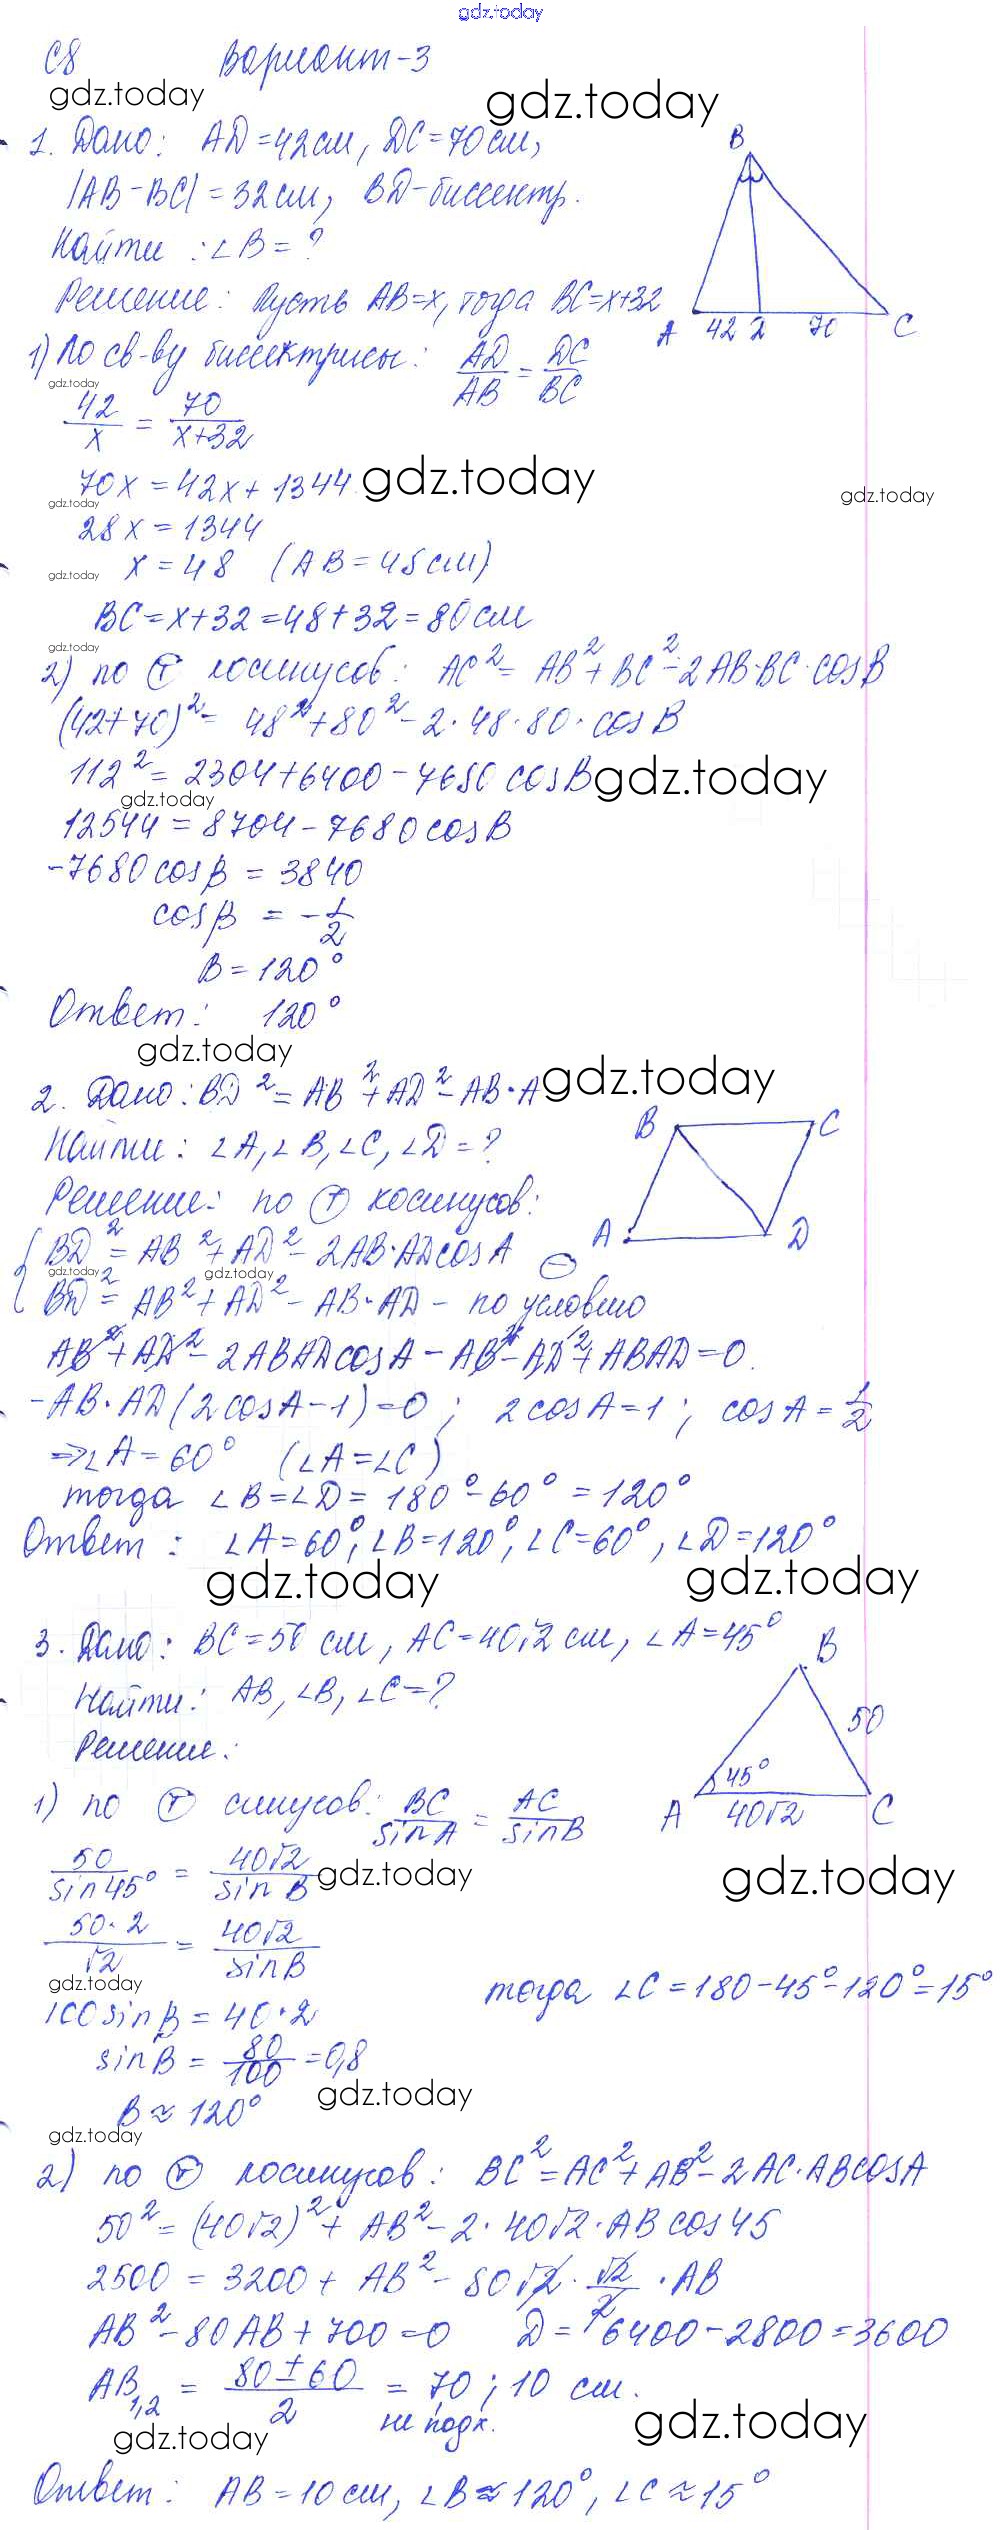 gdz.today
С8 Вариант-3
gdz.today gdz.today
1. Дано: AD=42см, DC=70см,
|AB-BC|=32см, BD-биссектр.
Найти: ∠B=?
Решение: Пусть AB=x, тогда BC=x+32
B
A 42 2 70 C
1) По св-ву биссектрисы: AD/AB = DC/BC
gdz.today
42/x = 70/(x+32)
70x=42x+1344 gdz.today
gdz.today gdz.today
28x=1344
gdz.today x=48 (AB=48см)
BC=x+32=48+32=80см
gdz.today
2) по Ⓣ косинусов: AC²=AB²+BC²-2AB·BC·cosB
(42+70)²=48²+80²-2·48·80·cosB
112²=2304+6400-7680cosB gdz.today
gdz.today
12544=8704-7680cosB
-7680cosβ=3840
cosβ=-1/2
B=120°
Ответ: 120°
gdz.today
2. Дано: BD²=AB²+AD²-AB·A gdz.today
Найти: ∠A,∠B,∠C,∠D=?
B C
A D
Решение: по Ⓣ косинусов:
{ BD²=AB²+AD²-2AB·ADcosA ⊖
gdz.today gdz.today
BD²=AB²+AD²-AB·AD - по условию
AB²+AD²-2ABADcosA-AB²-AD²+ABAD=0.
-AB·AD(2cosA-1)=0; 2cosA=1; cosA=1/2
=>∠A=60° (∠A=∠C)
тогда ∠B=∠D=180°-60°=120°
Ответ: ∠A=60°,∠B=120°,∠C=60°,∠D=120°
gdz.today gdz.today
3. Дано: BC=50 см, AC=40√2 см, ∠A=45°
Найти: AB,∠B,∠C=?
Решение:
B
50
45°
A 40√2 C
1) по Ⓣ синусов: BC/sinA = AC/sinB
50/sin45° = 40√2/sinB gdz.today gdz.today
50·2/√2 = 40√2/sinB
gdz.today
тогда ∠C=180-45°-120°=15°
100sinB=40·2
sinB=80/100=0,8
gdz.today
B≈120°
gdz.today
2) по Ⓣ косинусов: BC²=AC²+AB²-2AC·ABcosA
50²=(40√2)²+AB²-2·40√2·ABcos45
2500=3200+AB²-80√2·√2/2·AB
AB²-80AB+700=0 D=6400-2800=3600
AB₁,₂=(80±60)/2=70;10 см.
не подх.
gdz.today gdz.today
Ответ: AB=10см, ∠B≈120°, ∠C≈15°